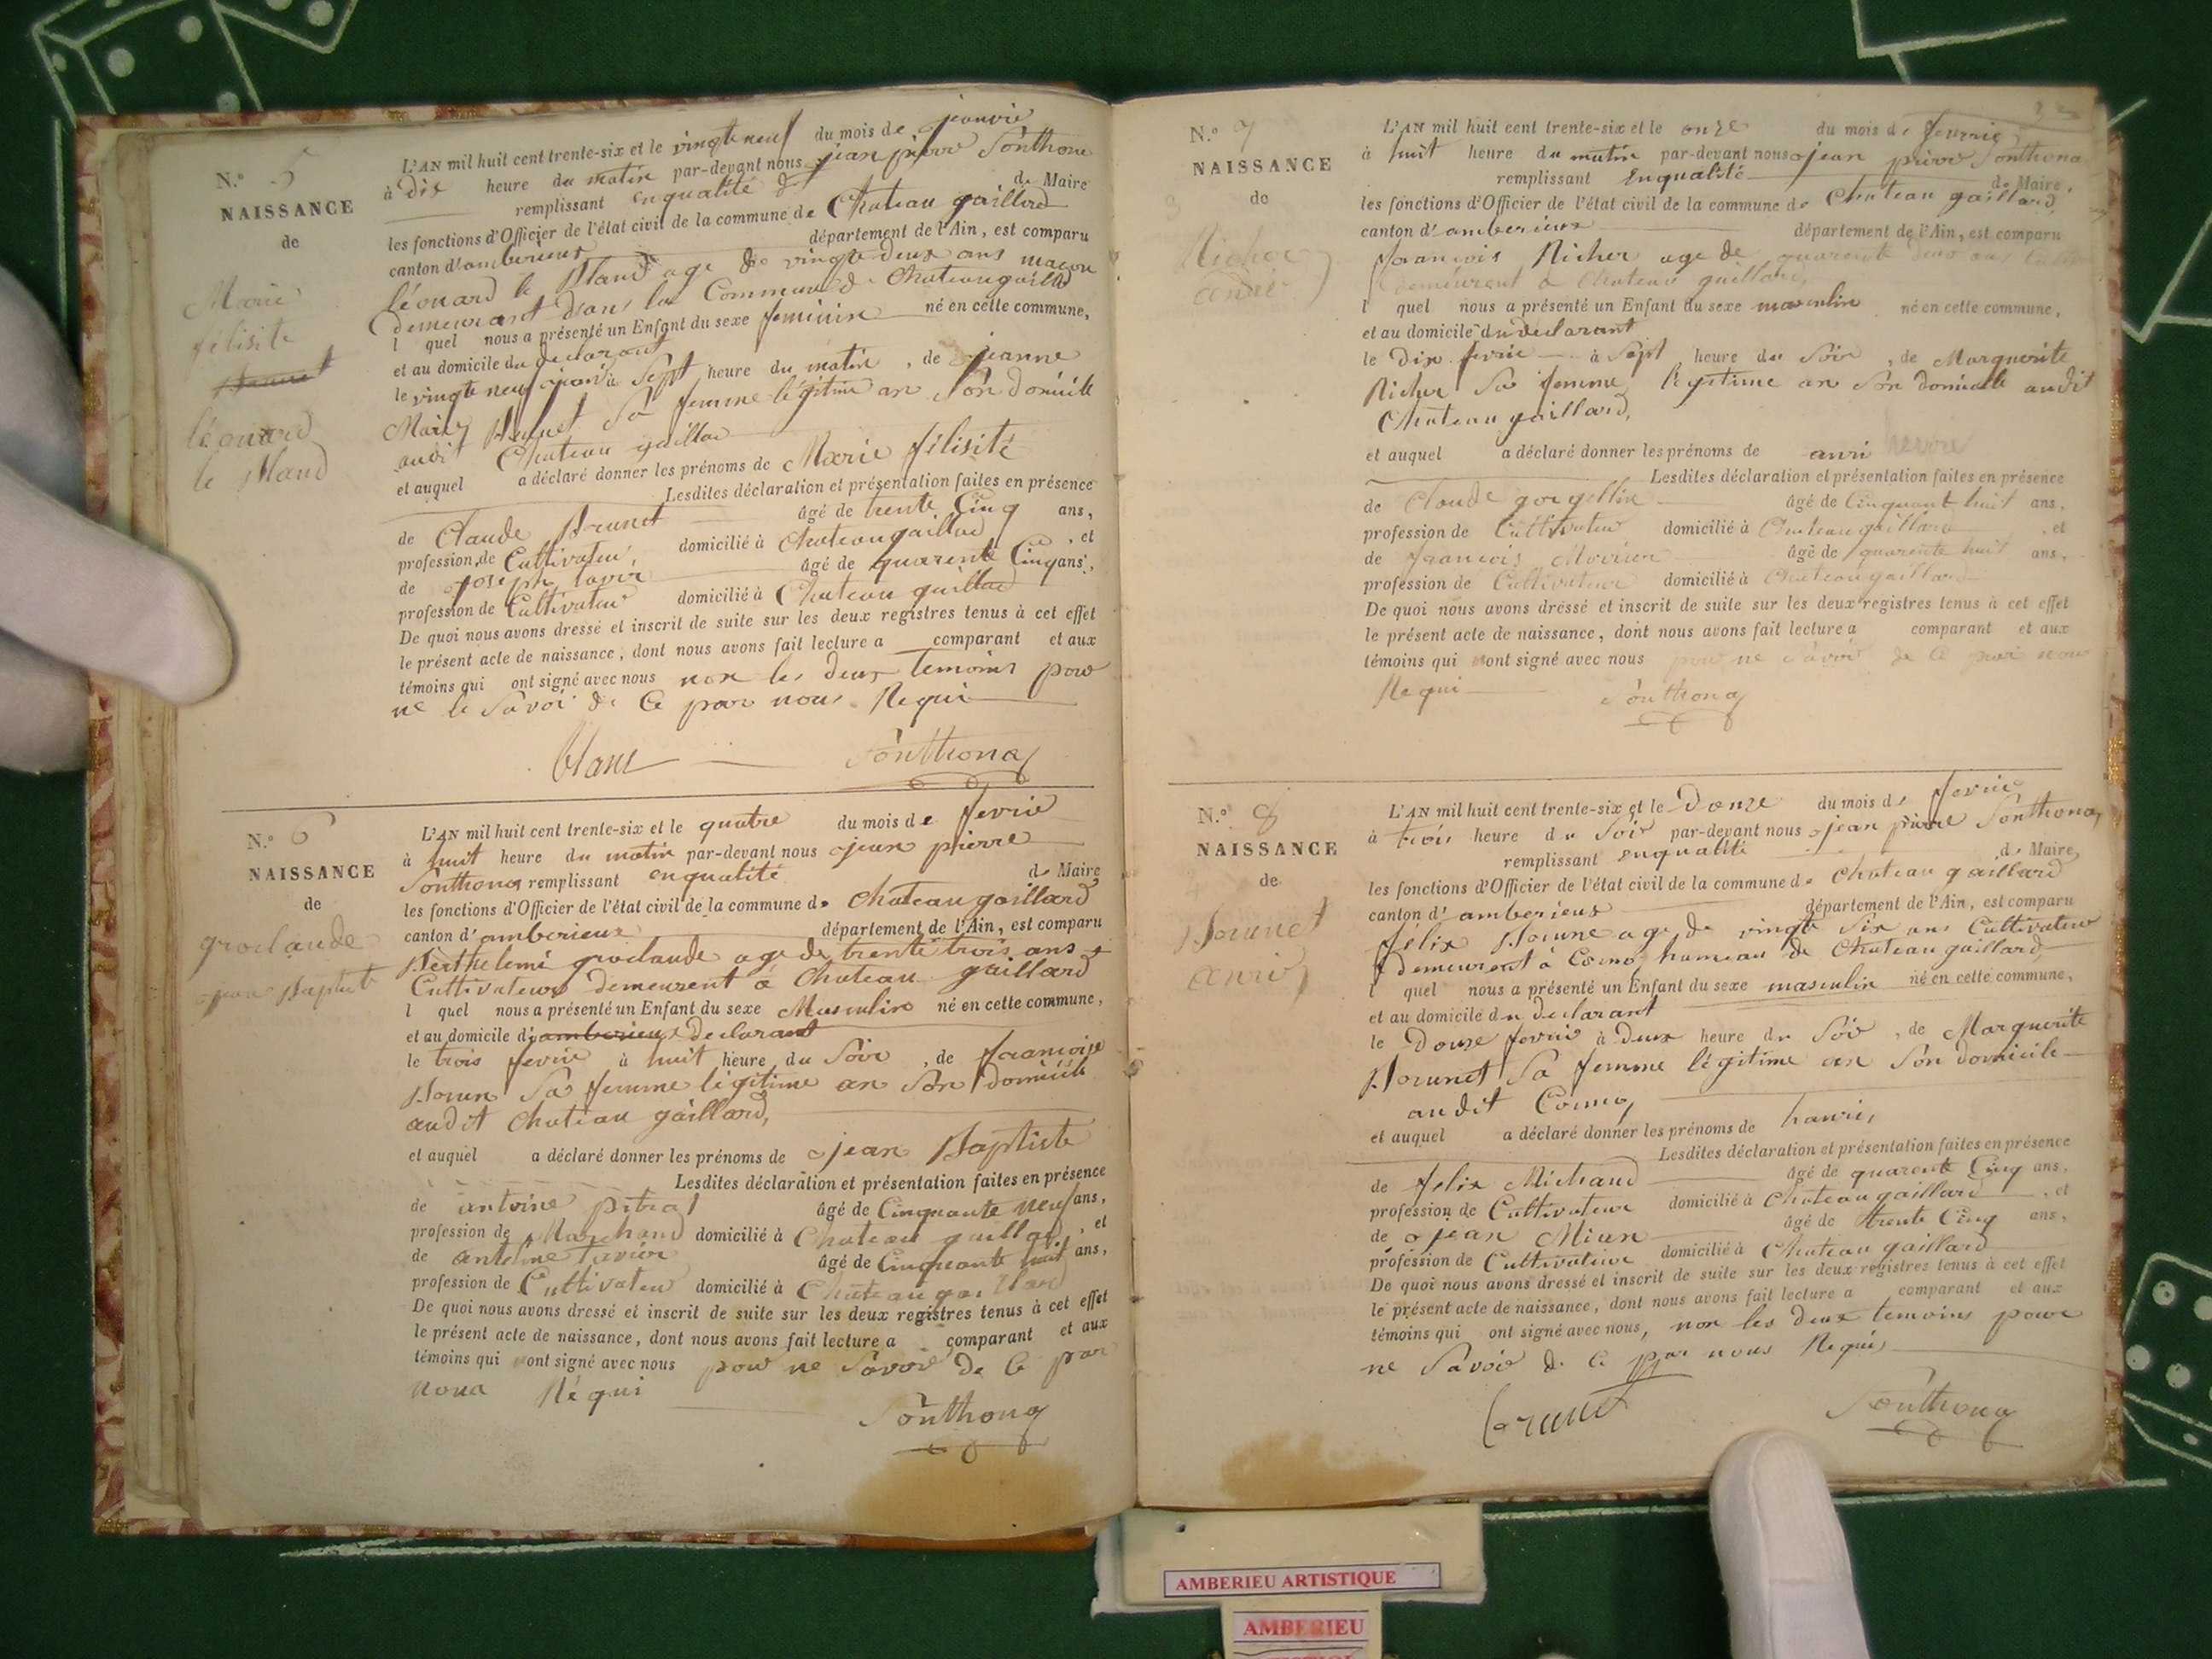 N.° 5
NAISSANCE
de
Marie
félisité
léonard
le Bland
L'AN mil huit cent trente-six et le vingte neuf du mois de janvié
à dix heure du matin par-devant nous jean pierre Sonthona
remplissant enqualité de Maire
les fonctions d'Officier de l'état civil de la commune de Chateau gaillard
canton d'amberieux département de l'Ain, est comparu
léonard le Bland age de vingte deux ans maçon
demeurant dans la Commune de Chateaugaillard
l quel nous a présenté un Enfant du sexe feminin né en cette commune,
et au domicile du declarant
le vingte neuf à Sept heure du matin, de jeanne
Marie Brunet Sa femme légitime an Son domicile
audit Chateau gaillar
et auquel a déclaré donner les prénoms de Marie félisité
Lesdites déclaration et présentation faites en présence
de Claude Brunet âgé de trente Cinq ans,
profession de Cultivateu domicilié à Chateaugaillard, et
de joseph tavié âgé de quarente Cinq ans,
profession de Cultivateur domicilié à Chateau gaillard
De quoi nous avons dressé et inscrit de suite sur les deux registres tenus à cet effet
le présent acte de naissance, dont nous avons fait lecture a comparant et aux
témoins qui ont signé avec nous non les deux temoins pour
ne le Savoi de Ce par nous Requi
blanc Sonthona
N.° 6
NAISSANCE
de
groclaude
jean Baptiste
L'AN mil huit cent trente-six et le quatre du mois de fevrié
à huit heure du matin par-devant nous jean pierre
Sonthona remplissant enqualité de Maire
les fonctions d'Officier de l'état civil de la commune de Chateau gaillard
canton d'amberieux département de l'Ain, est comparu
Berthelemi groclaude age de trente trois ans
Cultivateur demeurent a Chateau gaillard
l quel nous a présenté un Enfant du sexe Masculin né en cette commune,
et au domicile d'amberieux declarant
le trois fevrié à huit heure du Soir, de francoise
Brun Sa femme légitime an Son domicile
audit Chateau gaillard,
et auquel a déclaré donner les prénoms de jean Baptiste
Lesdites déclaration et présentation faites en présence
de antoine pitra âgé de Cinquante neuf ans,
profession de Marchand domicilié à Chateau gaillard, et
de antoine tavier âgé de Cinquante huit ans,
profession de Cultivateu domicilié à Chateau gaillard
De quoi nous avons dressé et inscrit de suite sur les deux registres tenus à cet effet
le présent acte de naissance, dont nous avons fait lecture a comparant et aux
témoins qui ont signé avec nous pour ne Savoir de Ce par
nous Réqui
Sonthona
N.° 7
NAISSANCE
de
Richer
anrie
L'AN mil huit cent trente-six et le onze du mois de fevrié
à huit heure du matin par-devant nous jean pierre Sonthona
remplissant Enqualité de Maire,
les fonctions d'Officier de l'état civil de la commune de Chateau gaillard
canton d'amberieux département de l'Ain, est comparu
francois Richer age de quarente deux ans
demeurent a Chateau gaillard,
l quel nous a présenté un Enfant du sexe masculin né en cette commune,
et au domicile du declarant
le dix fevrié à Sept heure du Soir, de Marguerite
Richer Sa femme legitime an Son domicile audit
Chateau gaillard,
et auquel a déclaré donner les prénoms de anri
Lesdites déclaration et présentation faites en présence
de Claude âgé de Cinquant huit ans,
profession de Cultivateur domicilié à Chateau gaillard, et
de francois Morier âgé de quarente huit ans,
profession de Cultivateur domicilié à Chateau gaillard
De quoi nous avons dressé et inscrit de suite sur les deux registres tenus à cet effet
le présent acte de naissance, dont nous avons fait lecture a comparant et aux
témoins qui ont signé avec nous pour ne Savoir de Ce par nous
Requi Sonthona
N.° 8
NAISSANCE
de
Brunet
anrie
L'AN mil huit cent trente-six et le Douze du mois de fevrié
à trois heure du Soir par-devant nous jean pierre Sonthona
remplissant enqualité de Maire
les fonctions d'Officier de l'état civil de la commune de Chateau gaillard
canton d'amberieux département de l'Ain, est comparu
félix Brune age de vingte Six ans Cultivateur
demeurent à hameau de Chateau gaillard
l quel nous a présenté un Enfant du sexe masculin né en cette commune,
et au domicile du declarant
le Douze fevrié à Deux heure du Soir, de Marguerite
Brunet Sa femme légitime an Son domicile
audit
et auquel a déclaré donner les prénoms de hanri,
Lesdites déclaration et présentation faites en présence
de felix Michaud âgé de quarente Cinq ans,
profession de Cultivateur domicilié à Chateau gaillard, et
de jean âgé de trente Cinq ans,
profession de Cultivateur domicilié à Chateau gaillard
De quoi nous avons dressé et inscrit de suite sur les deux registres tenus à cet effet
le présent acte de naissance, dont nous avons fait lecture a comparant et aux
témoins qui ont signé avec nous, non les deux temoins pour
ne Savoir de Ce par nous Requis
brunet Sonthona
AMBERIEU ARTISTIQUE
AMBERIEU